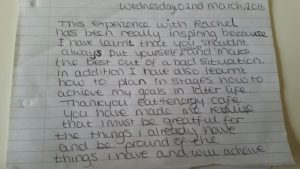 Wednesday 02nd march, 2016
This experience with Rachel
has been really inspiring because
I have learnt that you shouldnt
always put yourself and make
the best out of a bad situation.
In addition I have also learnt
how to plan in stages how to
achieve my goals in later life.
Thankyou eat4energy cafe
you have made me realise
that I must be greatful for
the things I already have
and be proud of the
things i have and will achieve